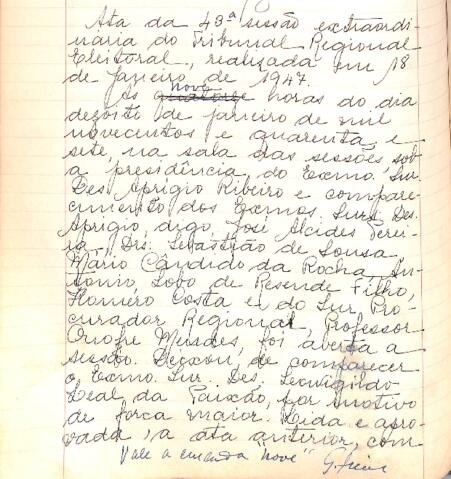 Ata da 43ª sessão extraordi-
nária do Tribunal Regional
Eleitoral, realizada em 18
de janeiro de 1947.
Às quatorze nove horas do dia
dezoito de janeiro de mil
novecentos e quarenta e
sete, na sala das sessões, sob
a presidência do Exmo. Snr.
Des. Aprigio Ribeiro e compare-
cimento dos Exmos. Snrs. Des.
Aprigio, digo, José Alcides Perei-
ra, Drs. Sebastião de Sousa,
Mário Cândido da Rocha, An-
tonio Lobo de Resende Filho,
Homero Costa e do Snr. Pro-
curador Regional, Professor
Onofre Mendes, foi aberta a
sessão. Deixou de comparecer
o Exmo. Snr. Des. Leovigildo
Leal da Paixão, por motivo
de força maior. Lida e apro-
vada a ata anterior, com
Vale a emenda "nove"